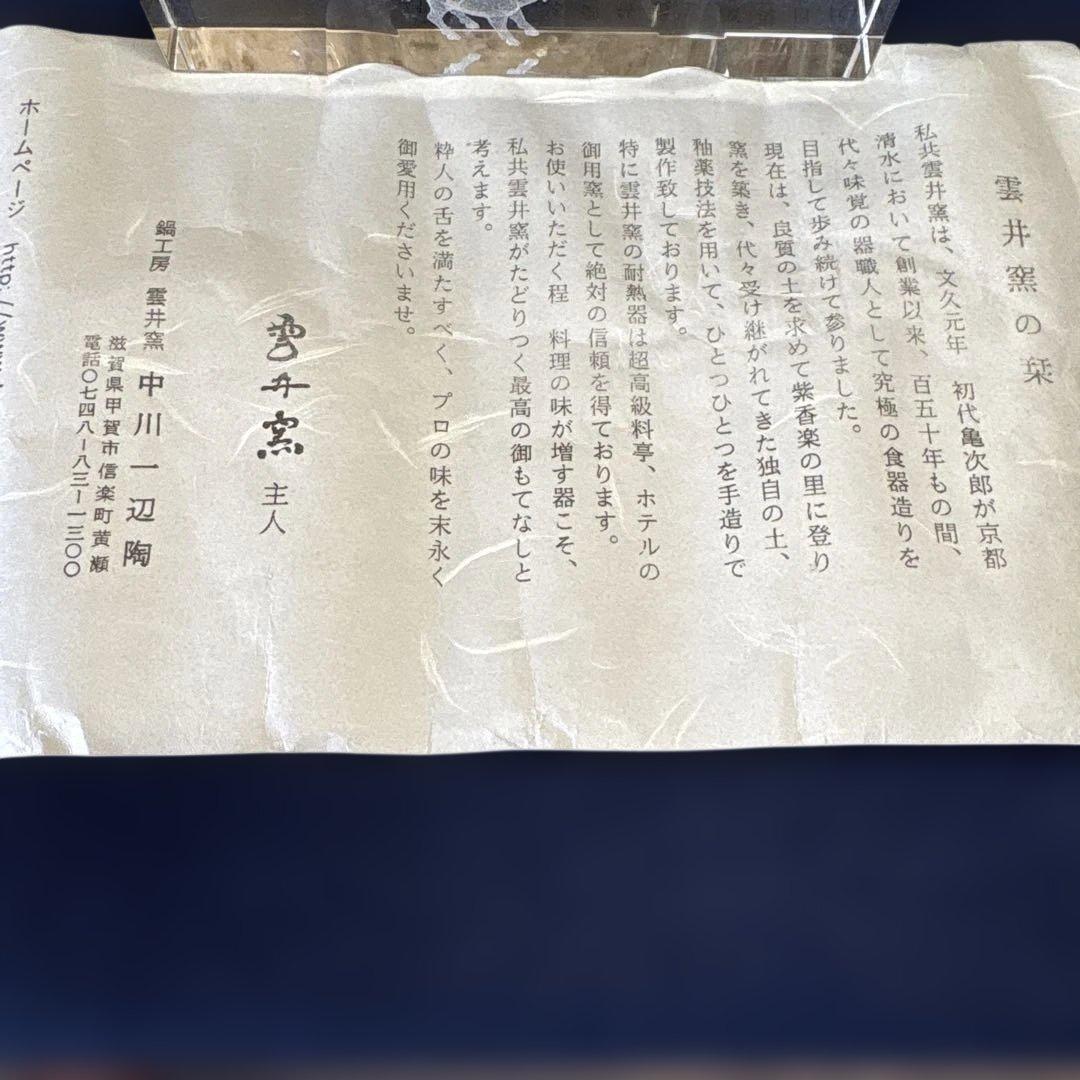 雲井窯の栞
私共雲井窯は、文久元年 初代亀次郎が京都
清水において創業以来、百五十年もの間、
代々味覚の器職人として究極の食器造りを
目指して歩み続けて参りました。
現在は、良質の土を求めて紫香楽の里に登り
窯を築き、代々受け継がれてきた独自の土、
釉薬技法を用いて、ひとつひとつを手造りで
製作致しております。
特に雲井窯の耐熱器は超高級料亭、ホテルの
御用窯として絶対の信頼を得ております。
お使いいただく程 料理の味が増す器こそ、
私共雲井窯がたどりつく最高の御もてなしと
考えます。
粋人の舌を満たすべく、プロの味を末永く
御愛用くださいませ。
雲井窯 主人
鍋工房 雲井窯 中川一辺陶
滋賀県甲賀市信楽町黄瀬
電話〇七四八-八三-一三〇〇
ホームページ http://www